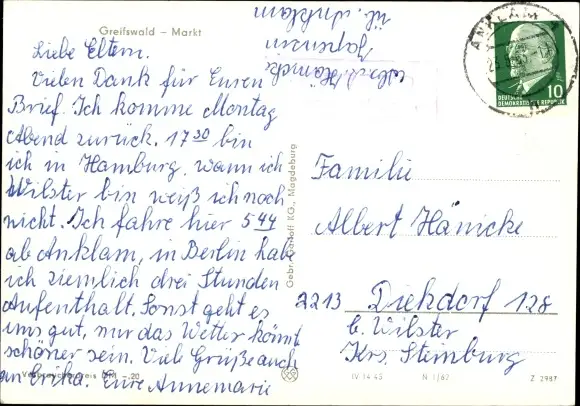 Greifswald – Markt
Liebe Eltern.
Vielen Dank für Euren
Brief. Ich komme Montag
Abend zurück. 17 30 bin
ich in Hamburg, wann ich
Wilster bin weiß ich noch
nicht. Ich fahre hier 5 44
ab Anklam, in Berlin habe
ich ziemlich drei Stunden
Aufenthalt. Sonst geht es
uns gut, nur das Wetter könnt
schöner sein. Viele Grüße auch
an Erika. Eure Annemarie
Verbraucherpreis DM -.20
üb. Anklam
Gebr. Garloff KG., Magdeburg
ANKLAM
10
DEUTSCHE
DEMOKRATISCHE REPUBLIK
Familie
Albert Hänicke
2213 Diekdorf 128
b. Wilster
Krs. Steinburg
IV 14 45 N 1/62 Z 2987